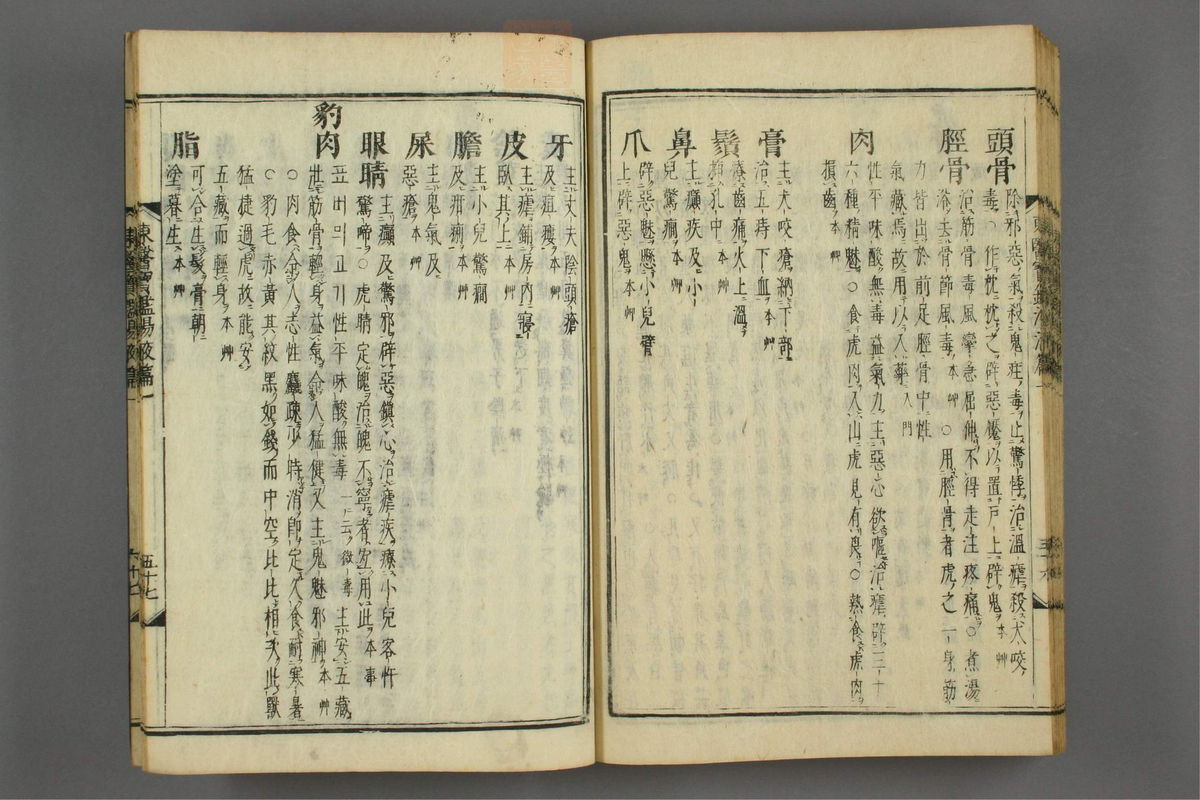 頭骨
除邪惡氣殺鬼疰毒止驚悸治溫瘧殺犬咬
毒○作枕枕之辟惡魘以置戶上辟鬼本艸
脛骨
治筋骨毒風攣急屈伸不得走注疼痛○煮湯
浴去骨節風毒本艸○用脛骨者虎之一身筋
力皆出於前足脛骨中性
氣藏焉故用以入藥入門
肉
性平味酸無毒益氣力主惡心欲嘔治瘧辟三十
六種精魅○食虎肉入山虎見有畏○熱食虎肉
損齒本艸
膏
主犬咬瘡納下部
治五痔下血本艸
鬚
療齒痛火上溫
插孔中本艸
鼻
主癲疾及小
兒驚癇本艸
爪
辟惡魅懸小兒臂
上辟惡鬼本艸
牙
主丈夫陰頭瘡
及疽瘻本艸
皮
主瘧鋪房內寢
臥其上本艸
膽
主小兒驚癇
及疳痢本艸
屎
主鬼氣及
惡瘡本艸
眼睛
主癲及驚邪辟惡鎭心治瘧疾療小兒客忤
驚啼○虎睛定魄治魄不寧者宜用此本事
豹肉
표버ᄆᆡ고기性平味酸無毒一云微毒主安五藏
壯筋骨輕身益氣令人猛健又主鬼魅邪神本艸
○肉食令人志性麤疎小時消卽定久食耐寒暑
○豹毛赤黃其紋黑如錢而中空比比相次此獸
猛捷過虎故能安
五藏而輕身本艸
脂
可合生髮膏朝
塗暮生本艸
東醫寶鑑湯液篇一
五十七